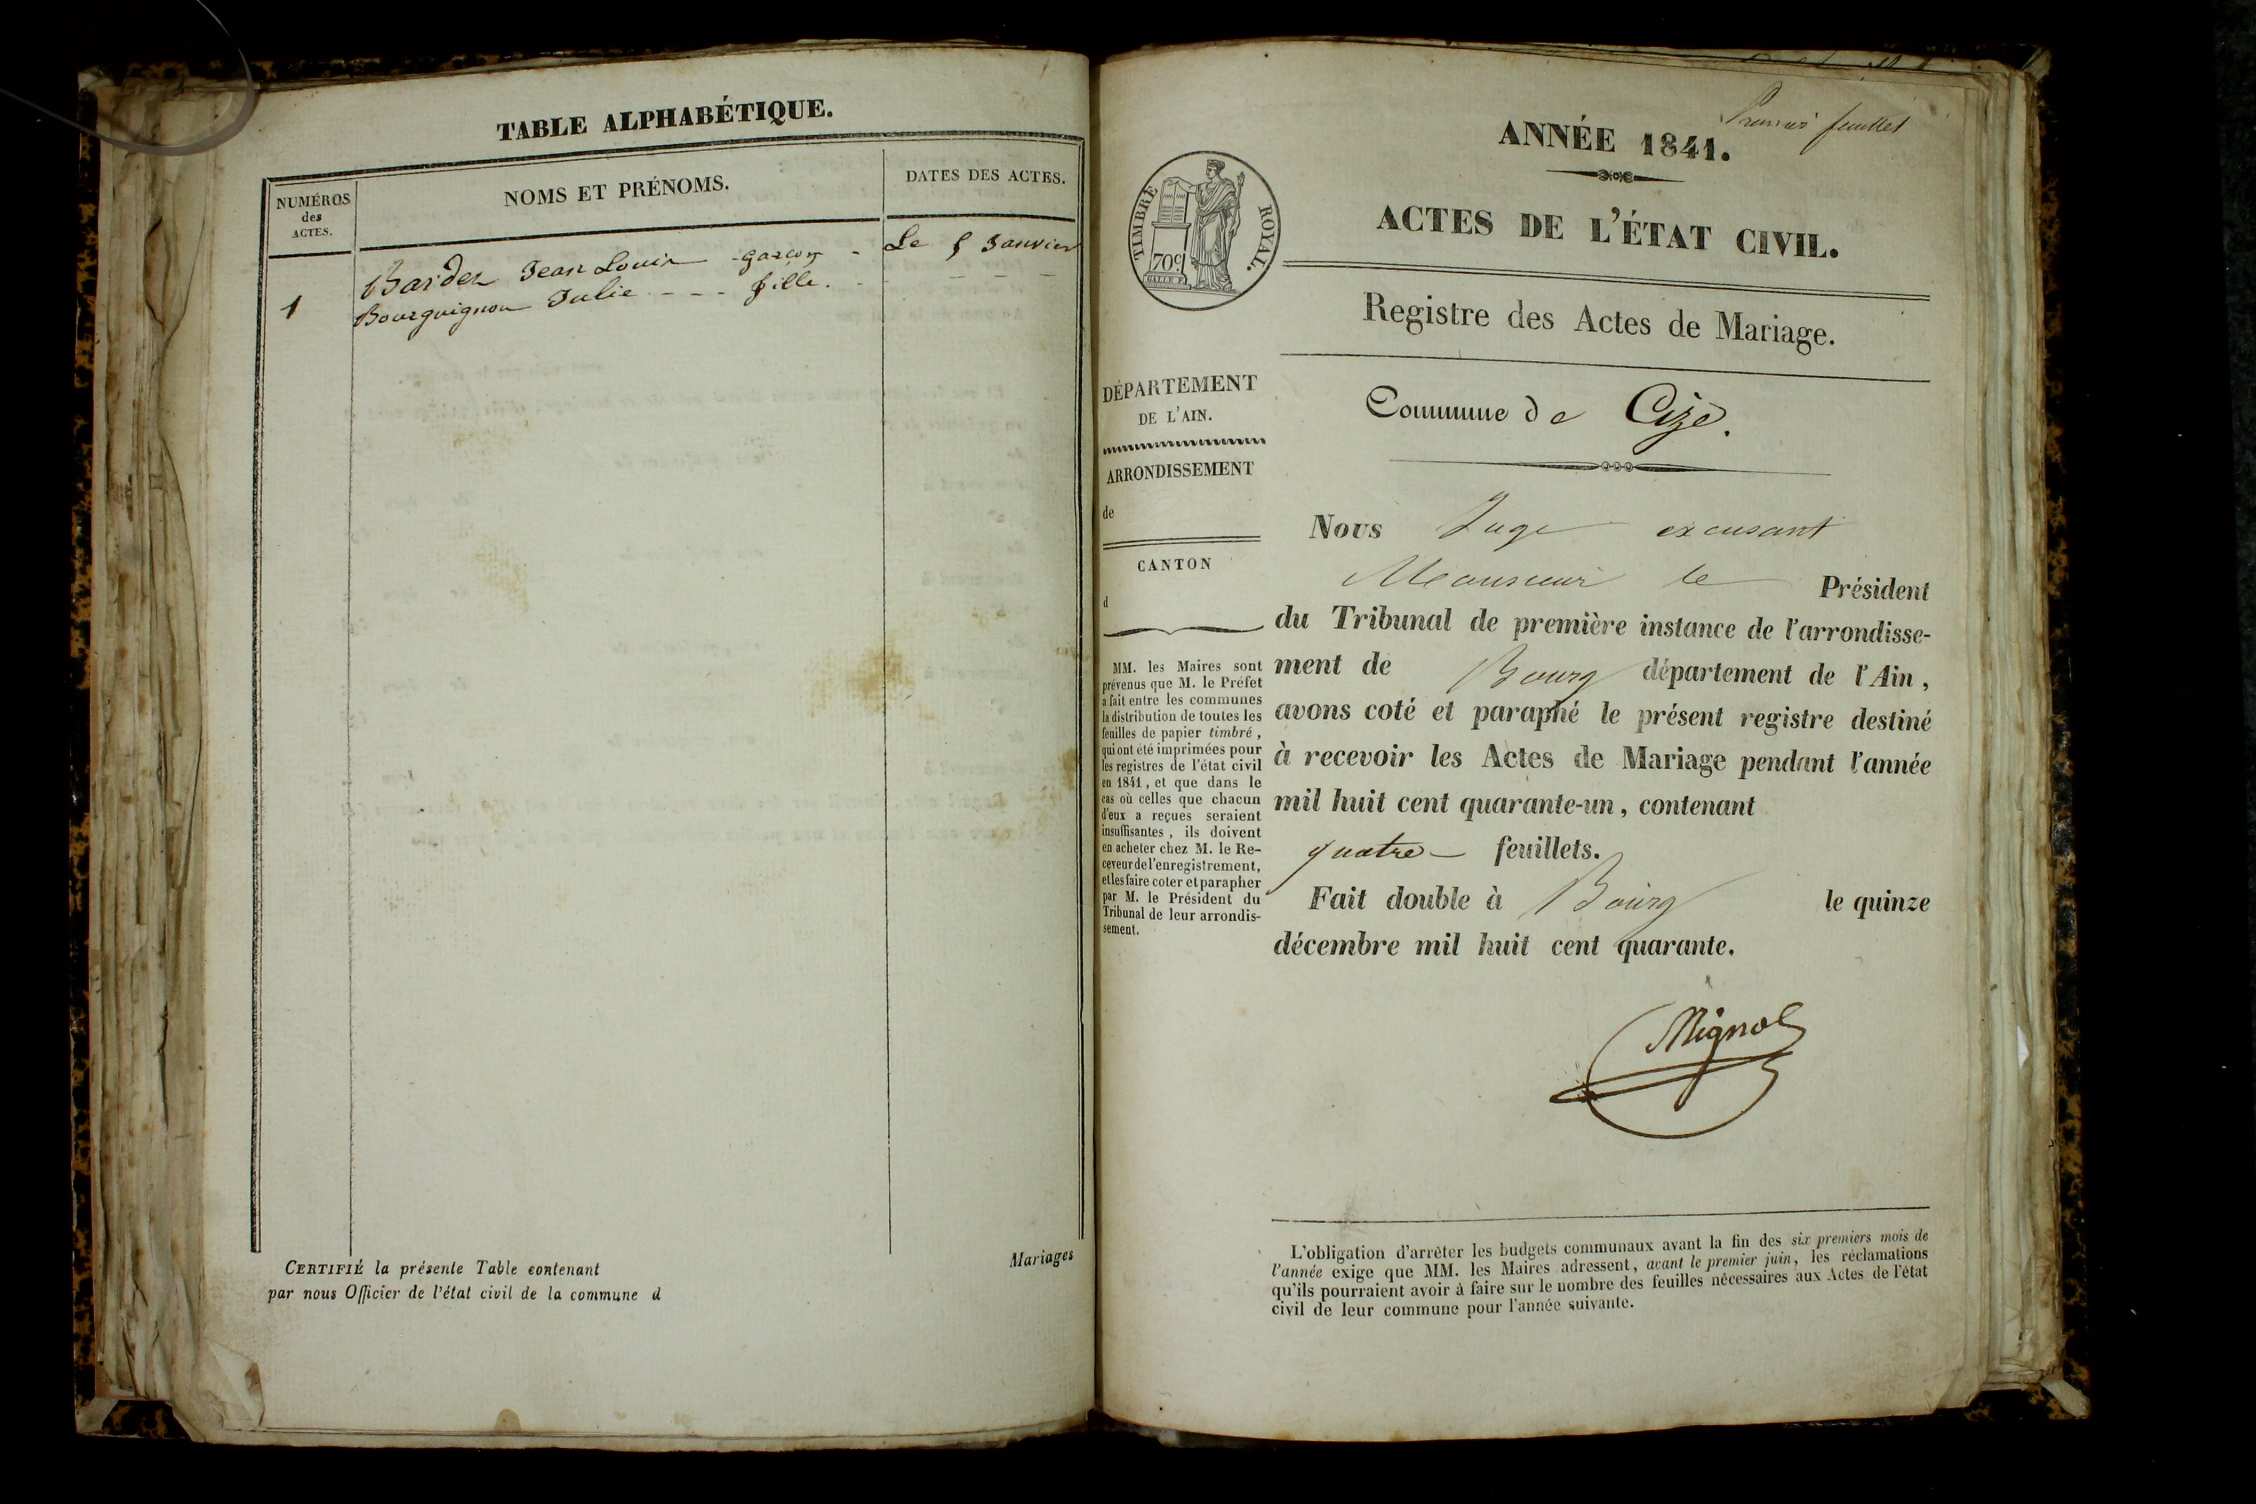 TABLE ALPHABÉTIQUE.
NUMÉROS
des
ACTES.
NOMS ET PRÉNOMS.
DATES DES ACTES.
1
Jean Louis - garçon -
Le 5 Janvier
Bourguignon Julie - - - fille.
CERTIFIÉ la présente Table contenant
par nous Officier de l'état civil de la commune d
Mariages
Premier feuillet
ANNÉE 1841.
TIMBRE ROYAL.
70c
ACTES DE L'ÉTAT CIVIL.
Registre des Actes de Mariage.
DÉPARTEMENT
DE L'AIN.
ARRONDISSEMENT
de
CANTON
d
MM. les Maires sont
prévenus que M. le Préfet
a fait entre les communes
la distribution de toutes les
feuilles de papier timbré,
qui ont été imprimées pour
les registres de l'état civil
en 1841, et que dans le
cas où celles que chacun
d'eux a reçues seraient
insuffisantes, ils doivent
en acheter chez M. le Re-
ceveur de l'enregistrement,
et les faire coter et parapher
par M. le Président du
Tribunal de leur arrondis-
sement.
Commune de Cize.
Nous Juge excusant
Monsieur le Président
du Tribunal de première instance de l'arrondisse-
ment de Bourg département de l'Ain,
avons coté et paraphé le présent registre destiné
à recevoir les Actes de Mariage pendant l'année
mil huit cent quarante-un, contenant
quatre - feuillets.
Fait double à Bourg le quinze
décembre mil huit cent quarante.
L'obligation d'arrêter les budgets communaux avant la fin des six premiers mois de
l'année exige que MM. les Maires adressent, avant le premier juin, les réclamations
qu'ils pourraient avoir à faire sur le nombre des feuilles nécessaires aux Actes de l'état
civil de leur commune pour l'année suivante.